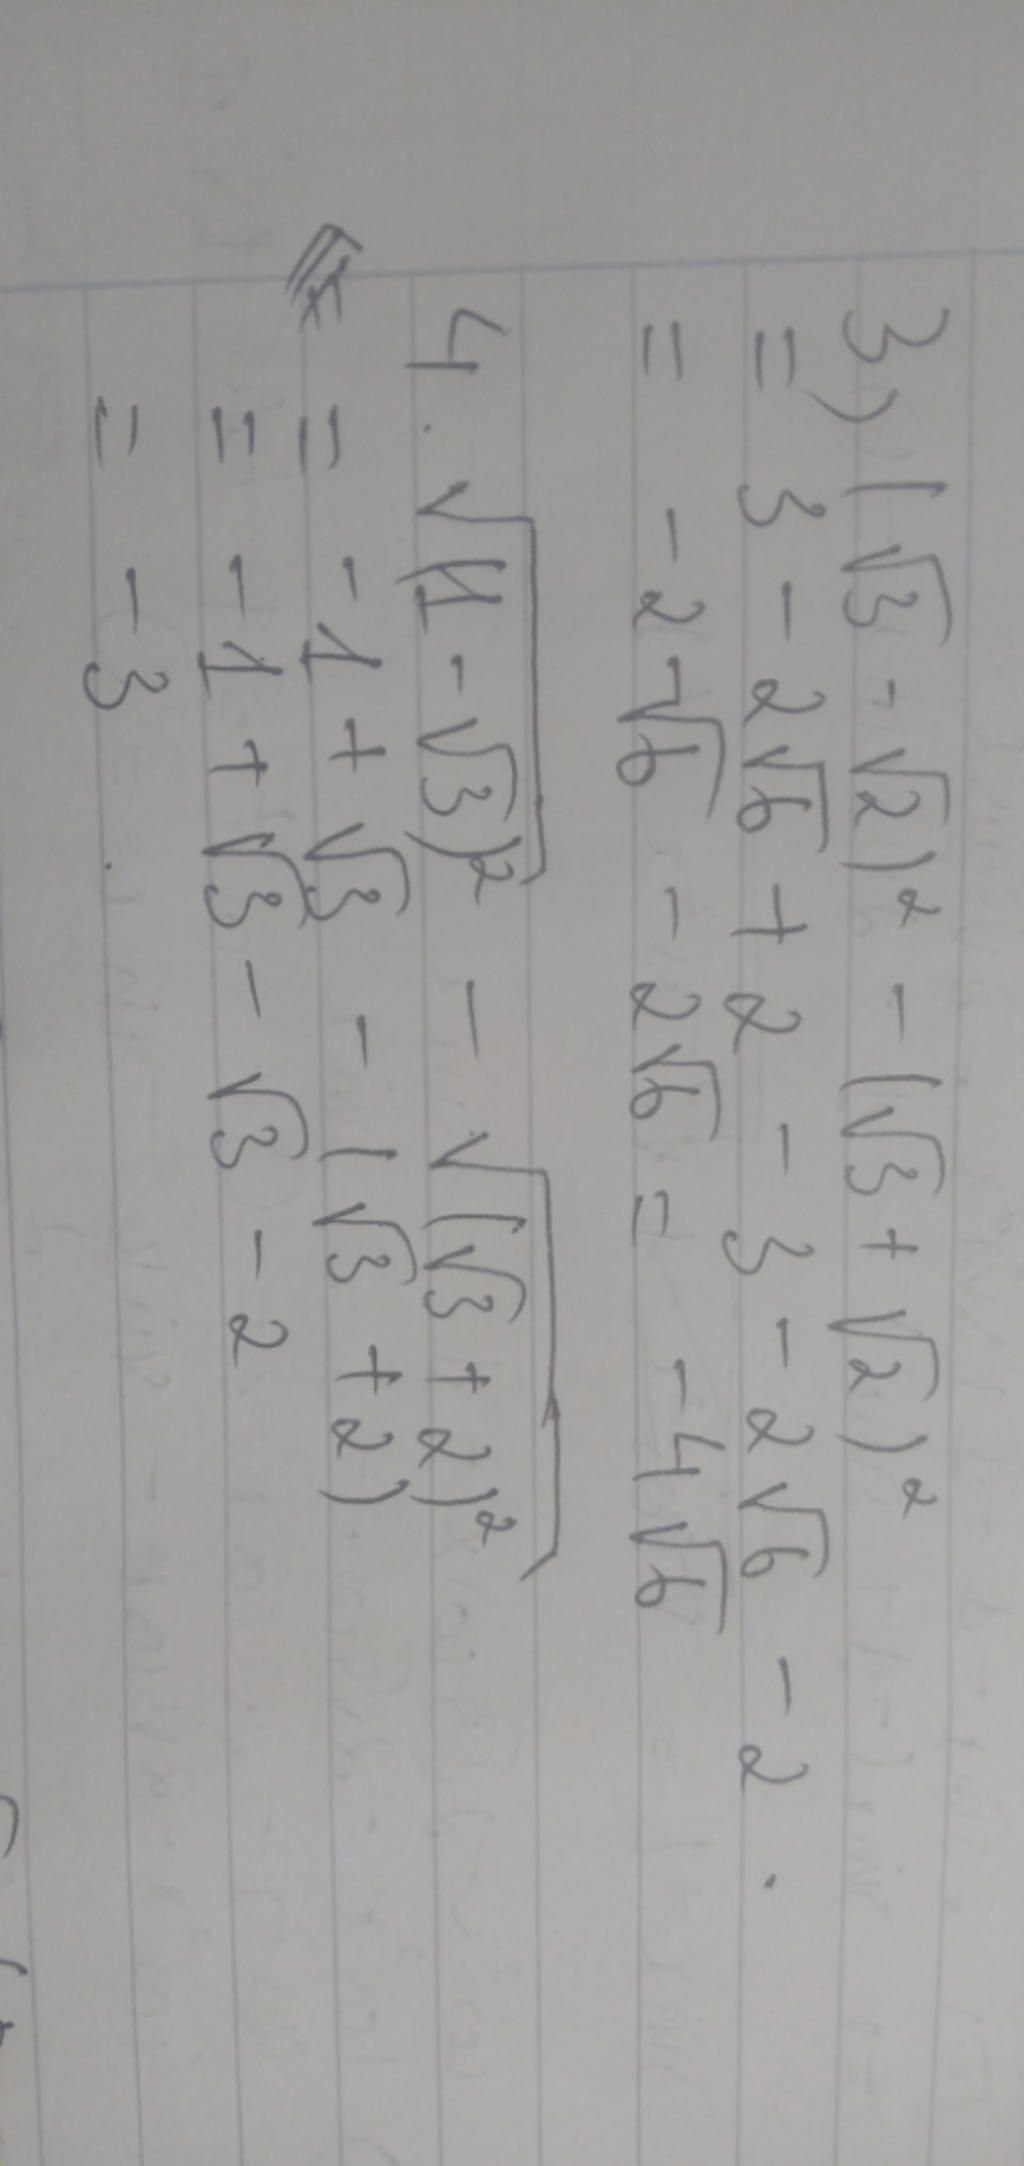 3) (√3 - √2)² - (√3 + √2)²
= 3 - 2√6 + 2 - 3 - 2√6 - 2.
= -2√6 - 2√6 = -4√6
4. √(1 - √3)² - √(√3 + 2)²
= -1 + √3 - (√3 + 2)
= -1 + √3 - √3 - 2
= -3.